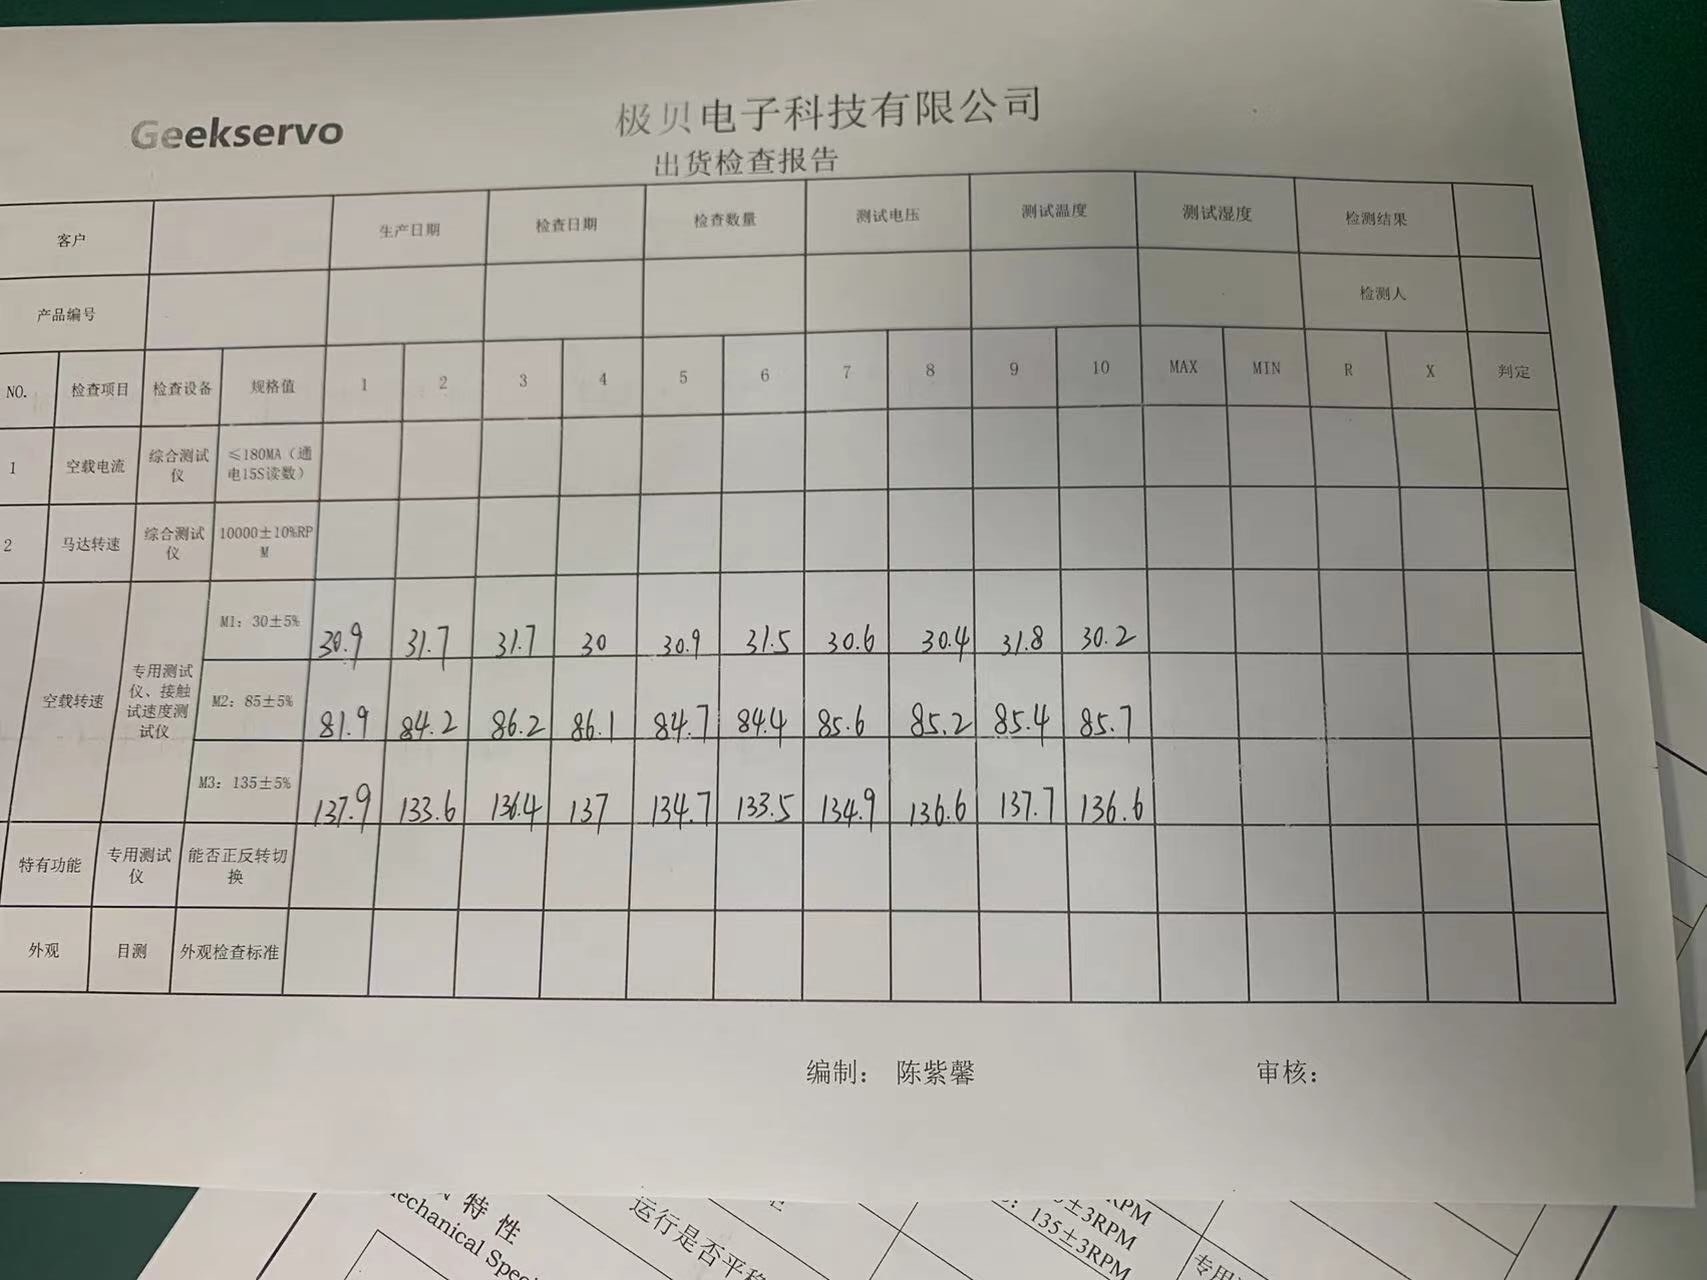 Geekservo
极贝电子科技有限公司
出货检查报告
客户 生产日期 检查日期 检查数量 测试电压 测试温度 测试湿度 检测结果
产品编号 检测人
NO. 检查项目 检查设备 规格值 1 2 3 4 5 6 7 8 9 10 MAX MIN R X 判定
1 空载电流 综合测试仪 ≤180MA（通电15S读数）
2 马达转速 综合测试仪 10000±10%RPM
空载转速 专用测试仪、接触试速度测试仪
M1: 30±5% 30.9 31.7 31.7 30 30.9 31.5 30.6 30.4 31.8 30.2
M2: 85±5% 81.9 84.2 86.2 86.1 84.7 84.4 85.6 85.2 85.4 85.7
M3: 135±5% 137.9 133.6 136.4 137 134.7 133.5 134.9 136.6 137.7 136.6
特有功能 专用测试仪 能否正反转切换
外观 目测 外观检查标准
编制： 陈紫馨 审核：
特性
运行是否平稳
±3RPM
135±3RPM
专用